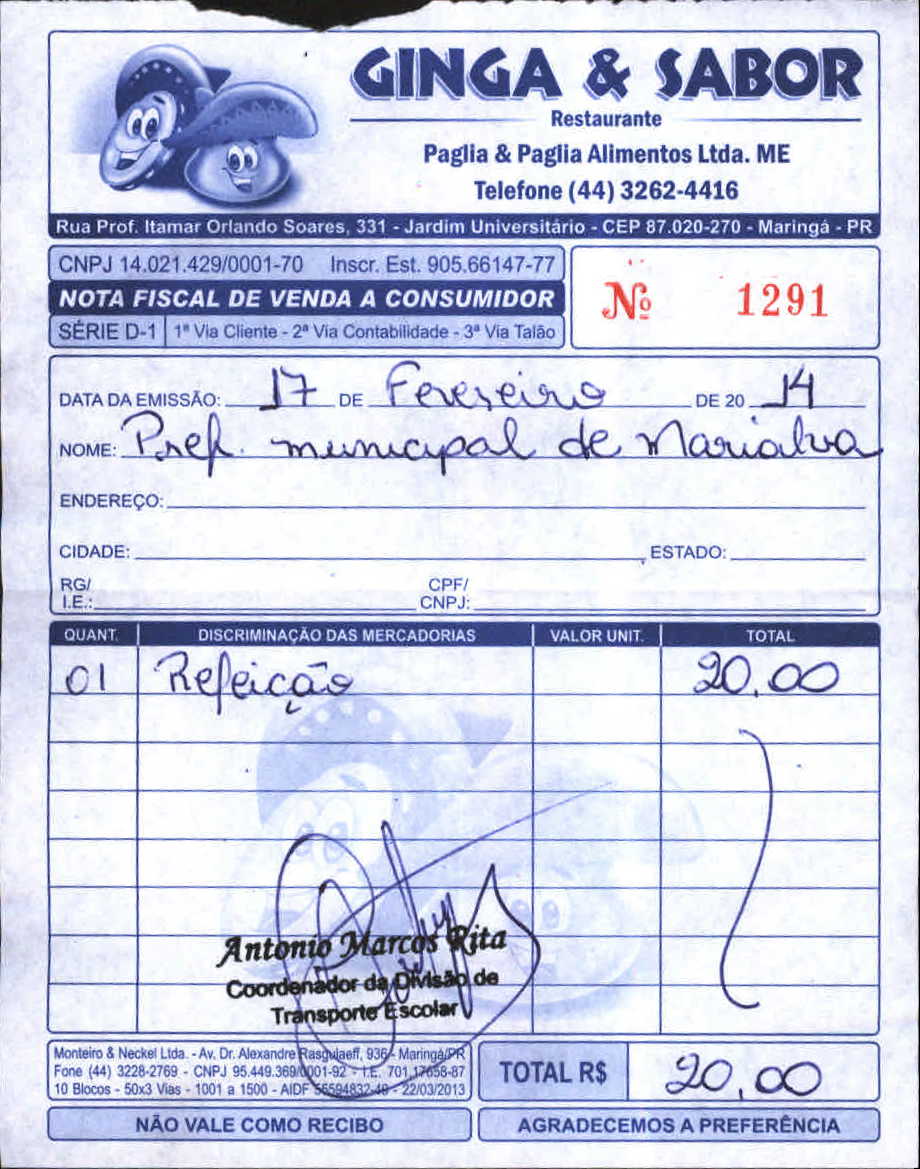 GINGA & SABOR
Restaurante
Paglia & Paglia Alimentos Ltda. ME
Telefone (44) 3262-4416
Rua Prof. Itamar Orlando Soares, 331 - Jardim Universitário - CEP 87.020-270 - Maringá - PR
CNPJ 14.021.429/0001-70 Inscr. Est. 905.66147-77
NOTA FISCAL DE VENDA A CONSUMIDOR
SÉRIE D-1 1ª Via Cliente - 2ª Via Contabilidade - 3ª Via Talão
Nº 1291
DATA DA EMISSÃO: 17 DE Fevereiro DE 20 14
NOME: Pref. municipal de Marialva
ENDEREÇO:
CIDADE: ESTADO:
RG/ CPF/
I.E.: CNPJ:
QUANT. DISCRIMINAÇÃO DAS MERCADORIAS VALOR UNIT. TOTAL
01 Refeição 20,00
Antonio Marcos Rita
Coordenador da Divisão de
Transporte Escolar
Monteiro & Neckel Ltda. - Av. Dr. Alexandre Rasgulaeff, 936 - Maringá/PR
Fone (44) 3228-2769 - CNPJ 95.449.369/0001-92 - I.E. 701.17658-87
10 Blocos - 50x3 Vias - 1001 a 1500 - AIDF - 22/03/2013
TOTAL R$ 20,00
NÃO VALE COMO RECIBO
AGRADECEMOS A PREFERÊNCIA